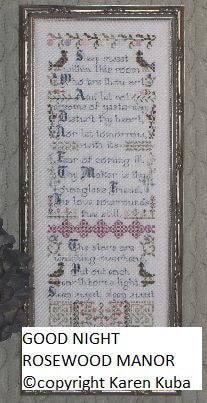 Sleep sweet
within this room
Who'ere thou art
And let no
dreams of yesterday
Disturb thy heart,
Nor let tomorrow
with its
Fear of coming ill.
Thy Maker is thy
changeless Friend,
His love surrounds
thee still.
The stars are
watching overhead
Put out each
earthborne light
Sleep sweet, sleep sweet
GOOD NIGHT
ROSEWOOD MANOR
©copyright Karen Kuba